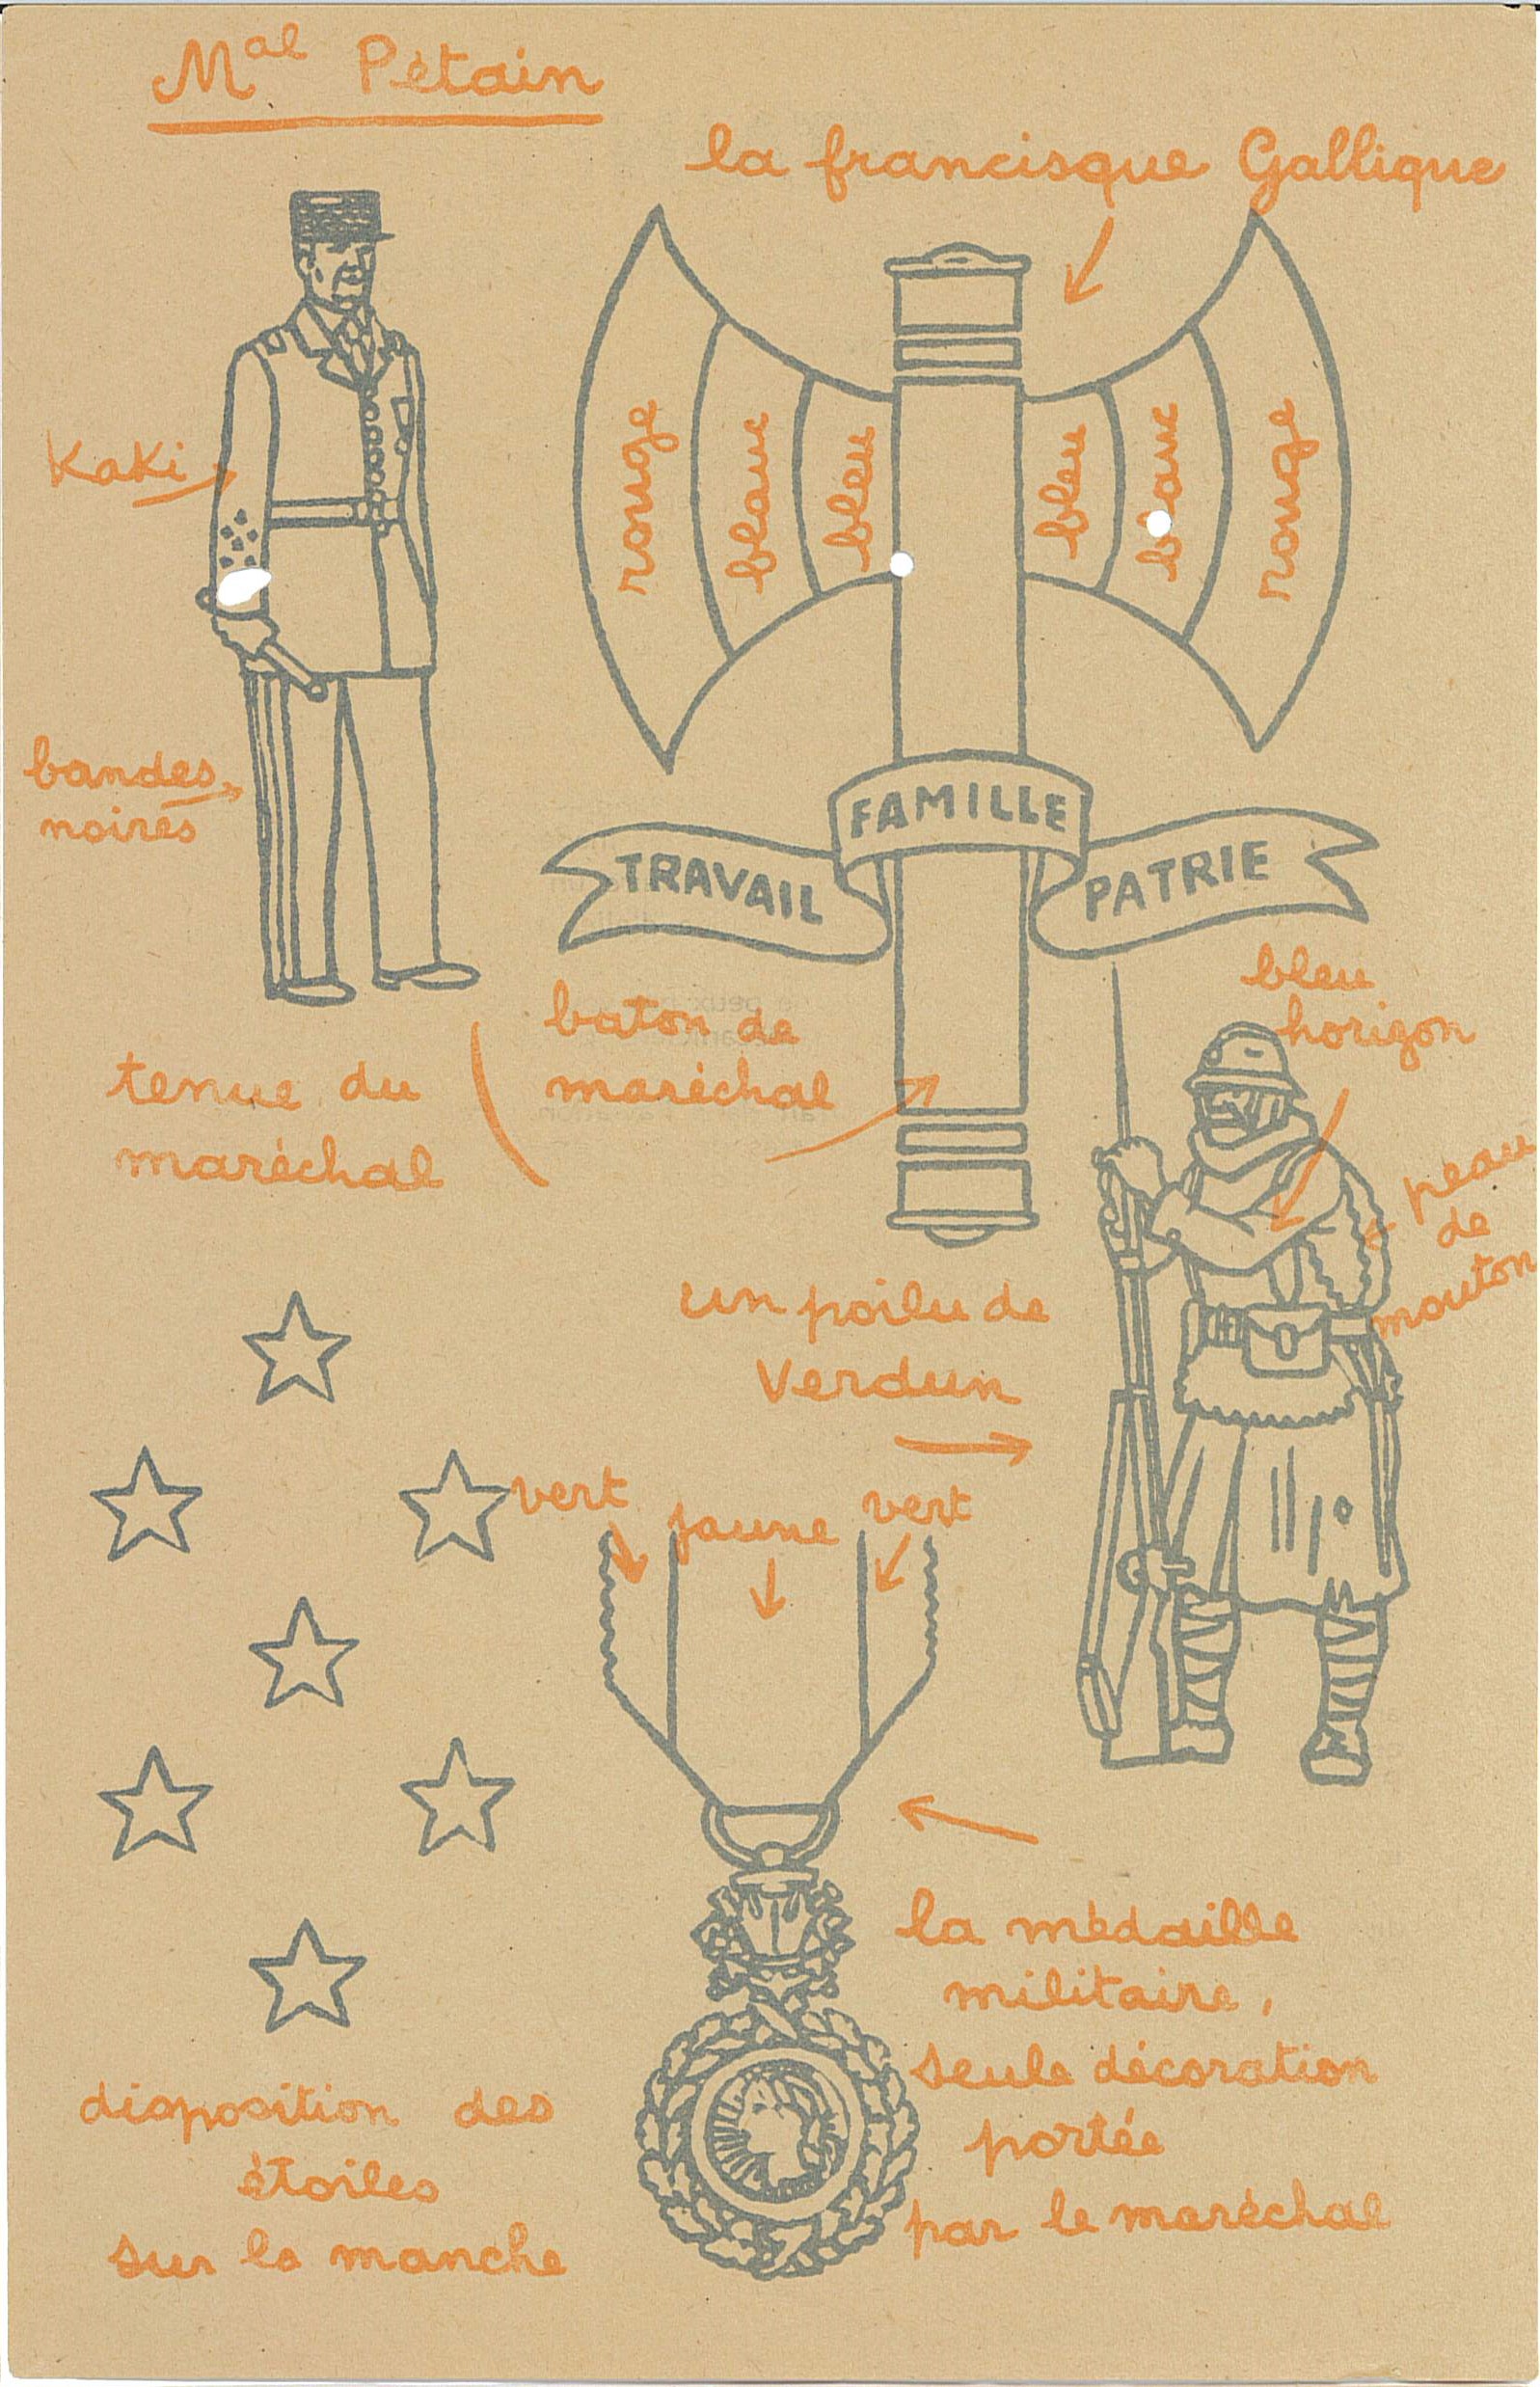 Mal Pétain
la francisque Gallique
rouge
blanc
bleu
bleu
blanc
rouge
Kaki
bandes
noires
FAMILLE
TRAVAIL
PATRIE
tenue du
maréchal
baton de
maréchal
bleu
horizon
peau
de
mouton
un poilu de
Verdun
vert
jaune
vert
la médaille
militaire,
seule décoration
portée
par le maréchal
disposition des
étoiles
sur la manche